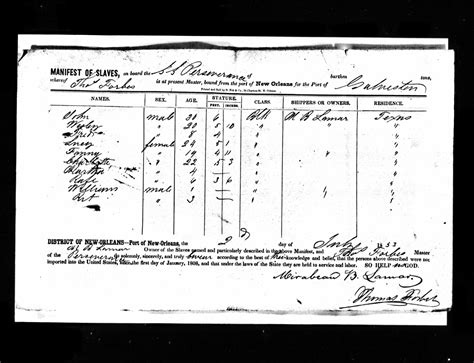 MANIFEST OF SLAVES, on board the SS Perseverance of burthen tons,
whereof Thos Forbes is at present Master, bound from the port of New Orleans for the Port of Galveston
NAMES. SEX. AGE. STATURE. CLASS. SHIPPERS OR OWNERS. RESIDENCE.
FEET. INCHES.
John male 30 6 Blk M B Lamar Texas
20 5 10
8 4
Lucy female 24 5 1
Fanny " 19 4 11
Charlotte " 22 5 3
Martha " 4
Kate " 6 3 6
William male 1
" 3
DISTRICT OF NEW-ORLEANS—Port of New Orleans, the 2d day of July 1853
M B Lamar Owner of the Slaves named and particularly described in the above Manifest, and Thos Forbes Master
of the Perseverance do solemnly, sincerely, and truly swear according to the best of their knowledge and belief, that the persons above described were not
imported into the United States, since the first day of January, 1808, and that under the laws of the State they are held to service and labor. SO HELP US GOD.
Mirabeau B. Lamar
Thomas Forbes